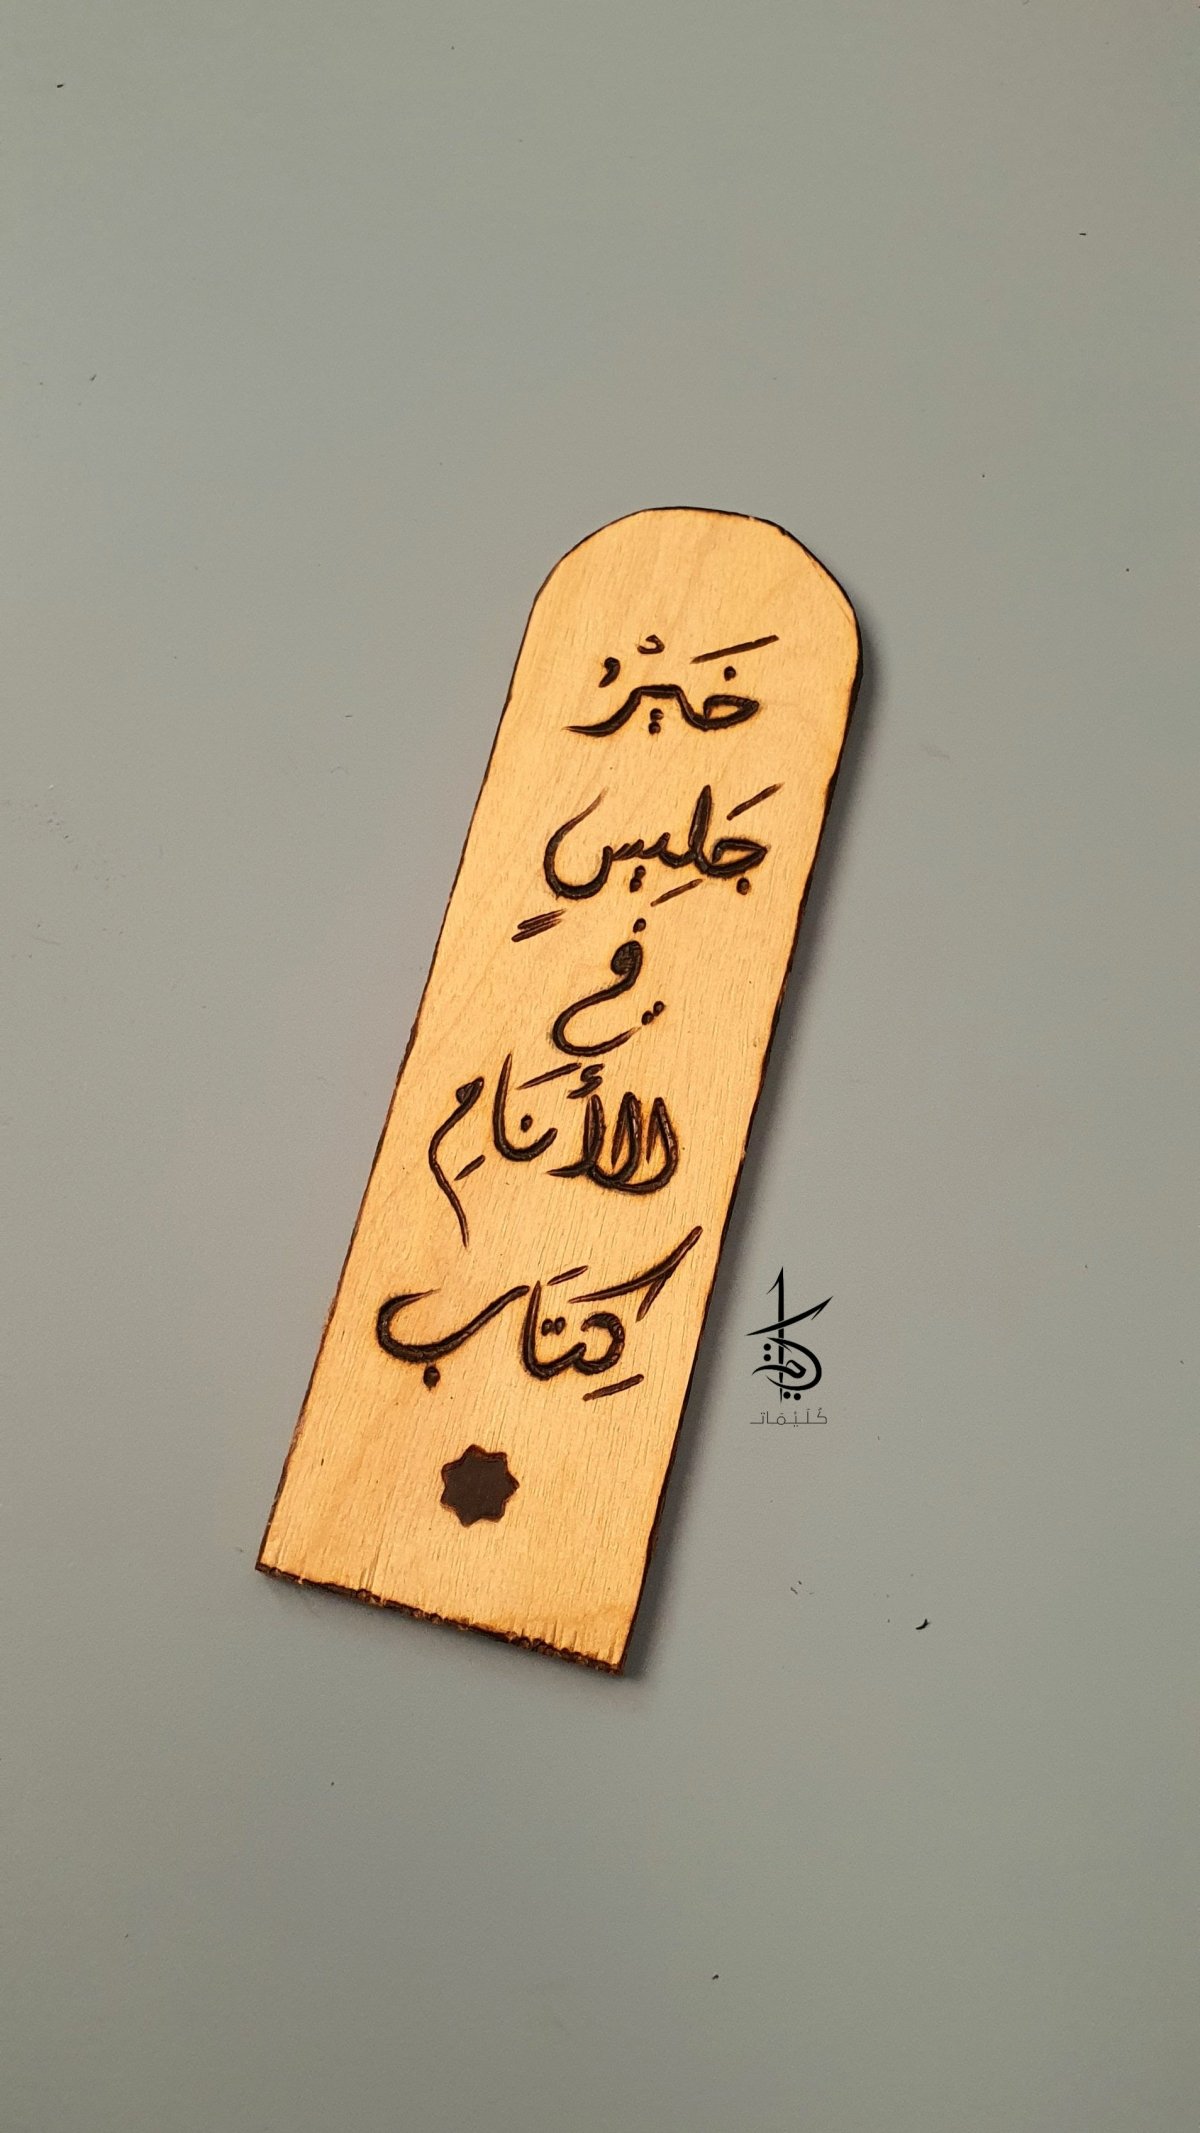 خَيْرُ
جَلِيسٍ
في
الأَنَامِ
كِتَاب
كُلَيْمَات